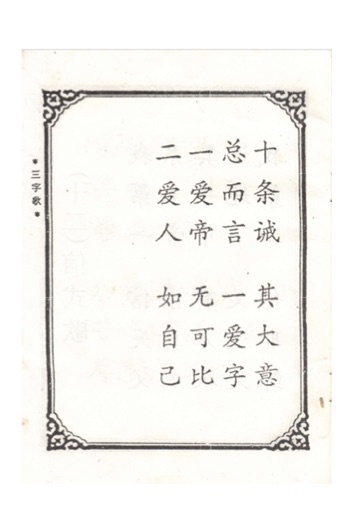 十条诫　其大意
总而言　一爱字
一爱帝　无可比
二爱人　如自己
*三字歌*